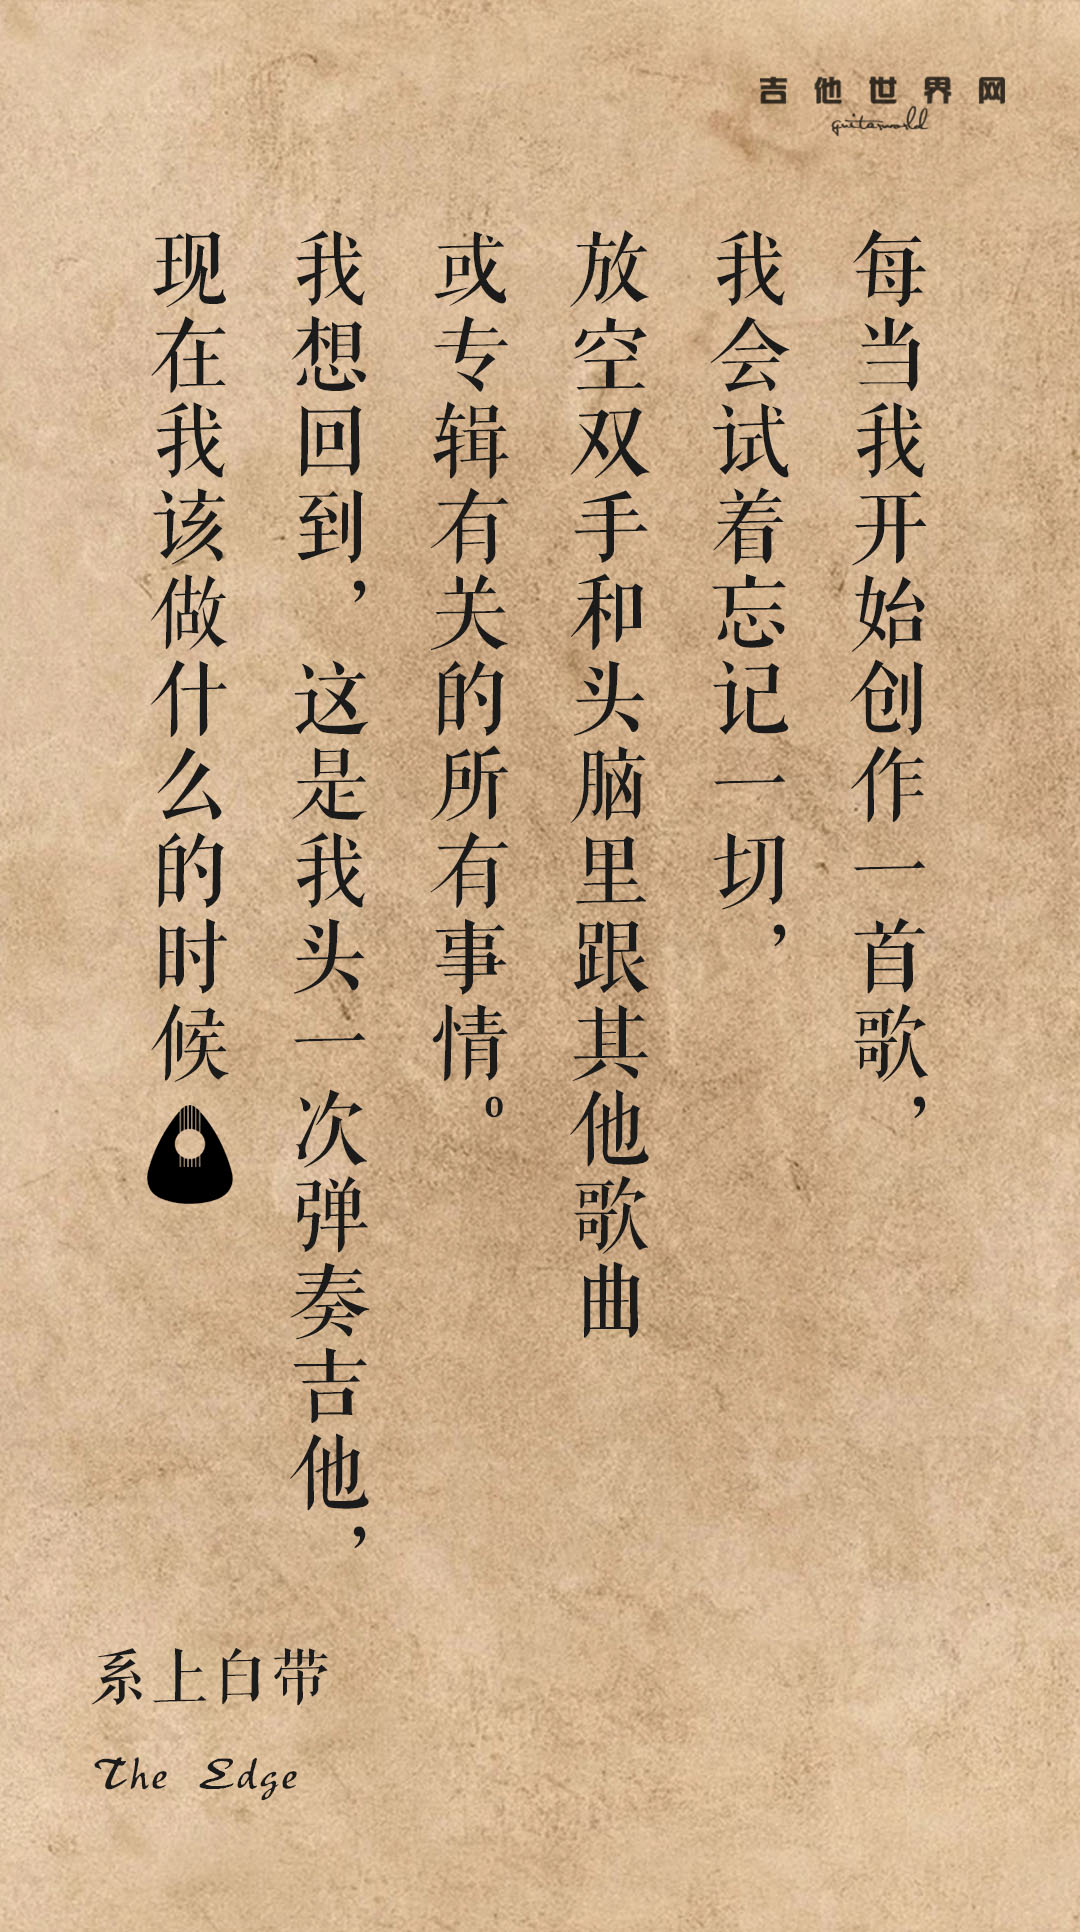 吉他世界网
guitarworld
每当我开始创作一首歌，
我会试着忘记一切，
放空双手和头脑里跟其他歌曲
或专辑有关的所有事情。
我想回到，这是我头一次弹奏吉他，
现在我该做什么的时候
系上白带
The Edge